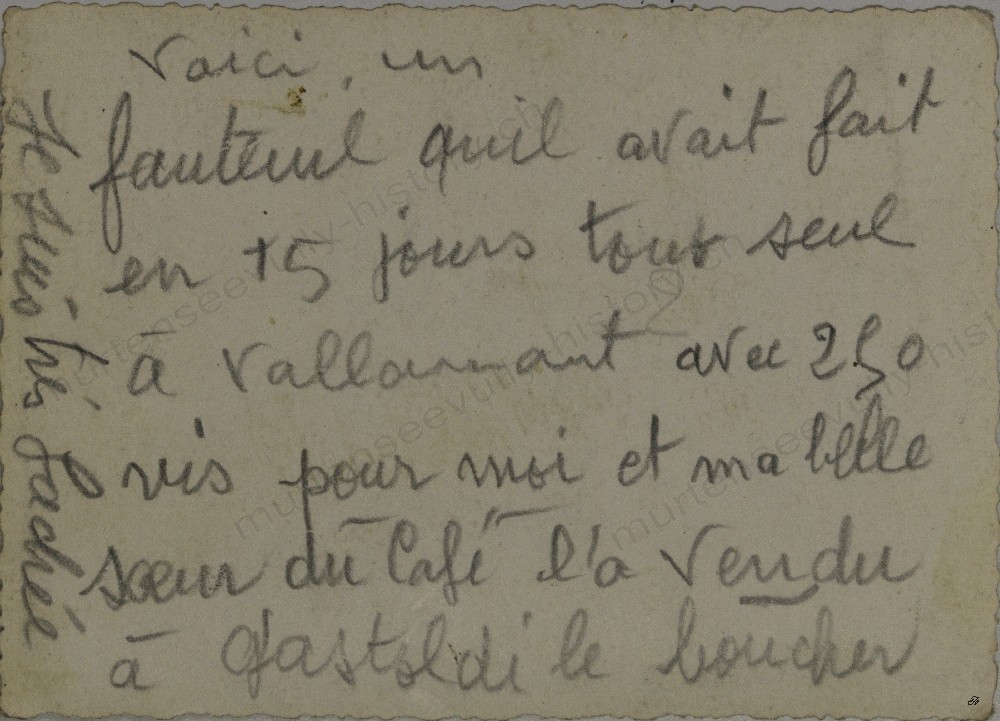 Voici, un
fauteuil qu'il avait fait
en 15 jours tout seul
à Vallamant avec 250
vis pour moi et ma belle
sœur du Café l'a vendu
à Gastoldi le boucher
Je suis très fachée
2